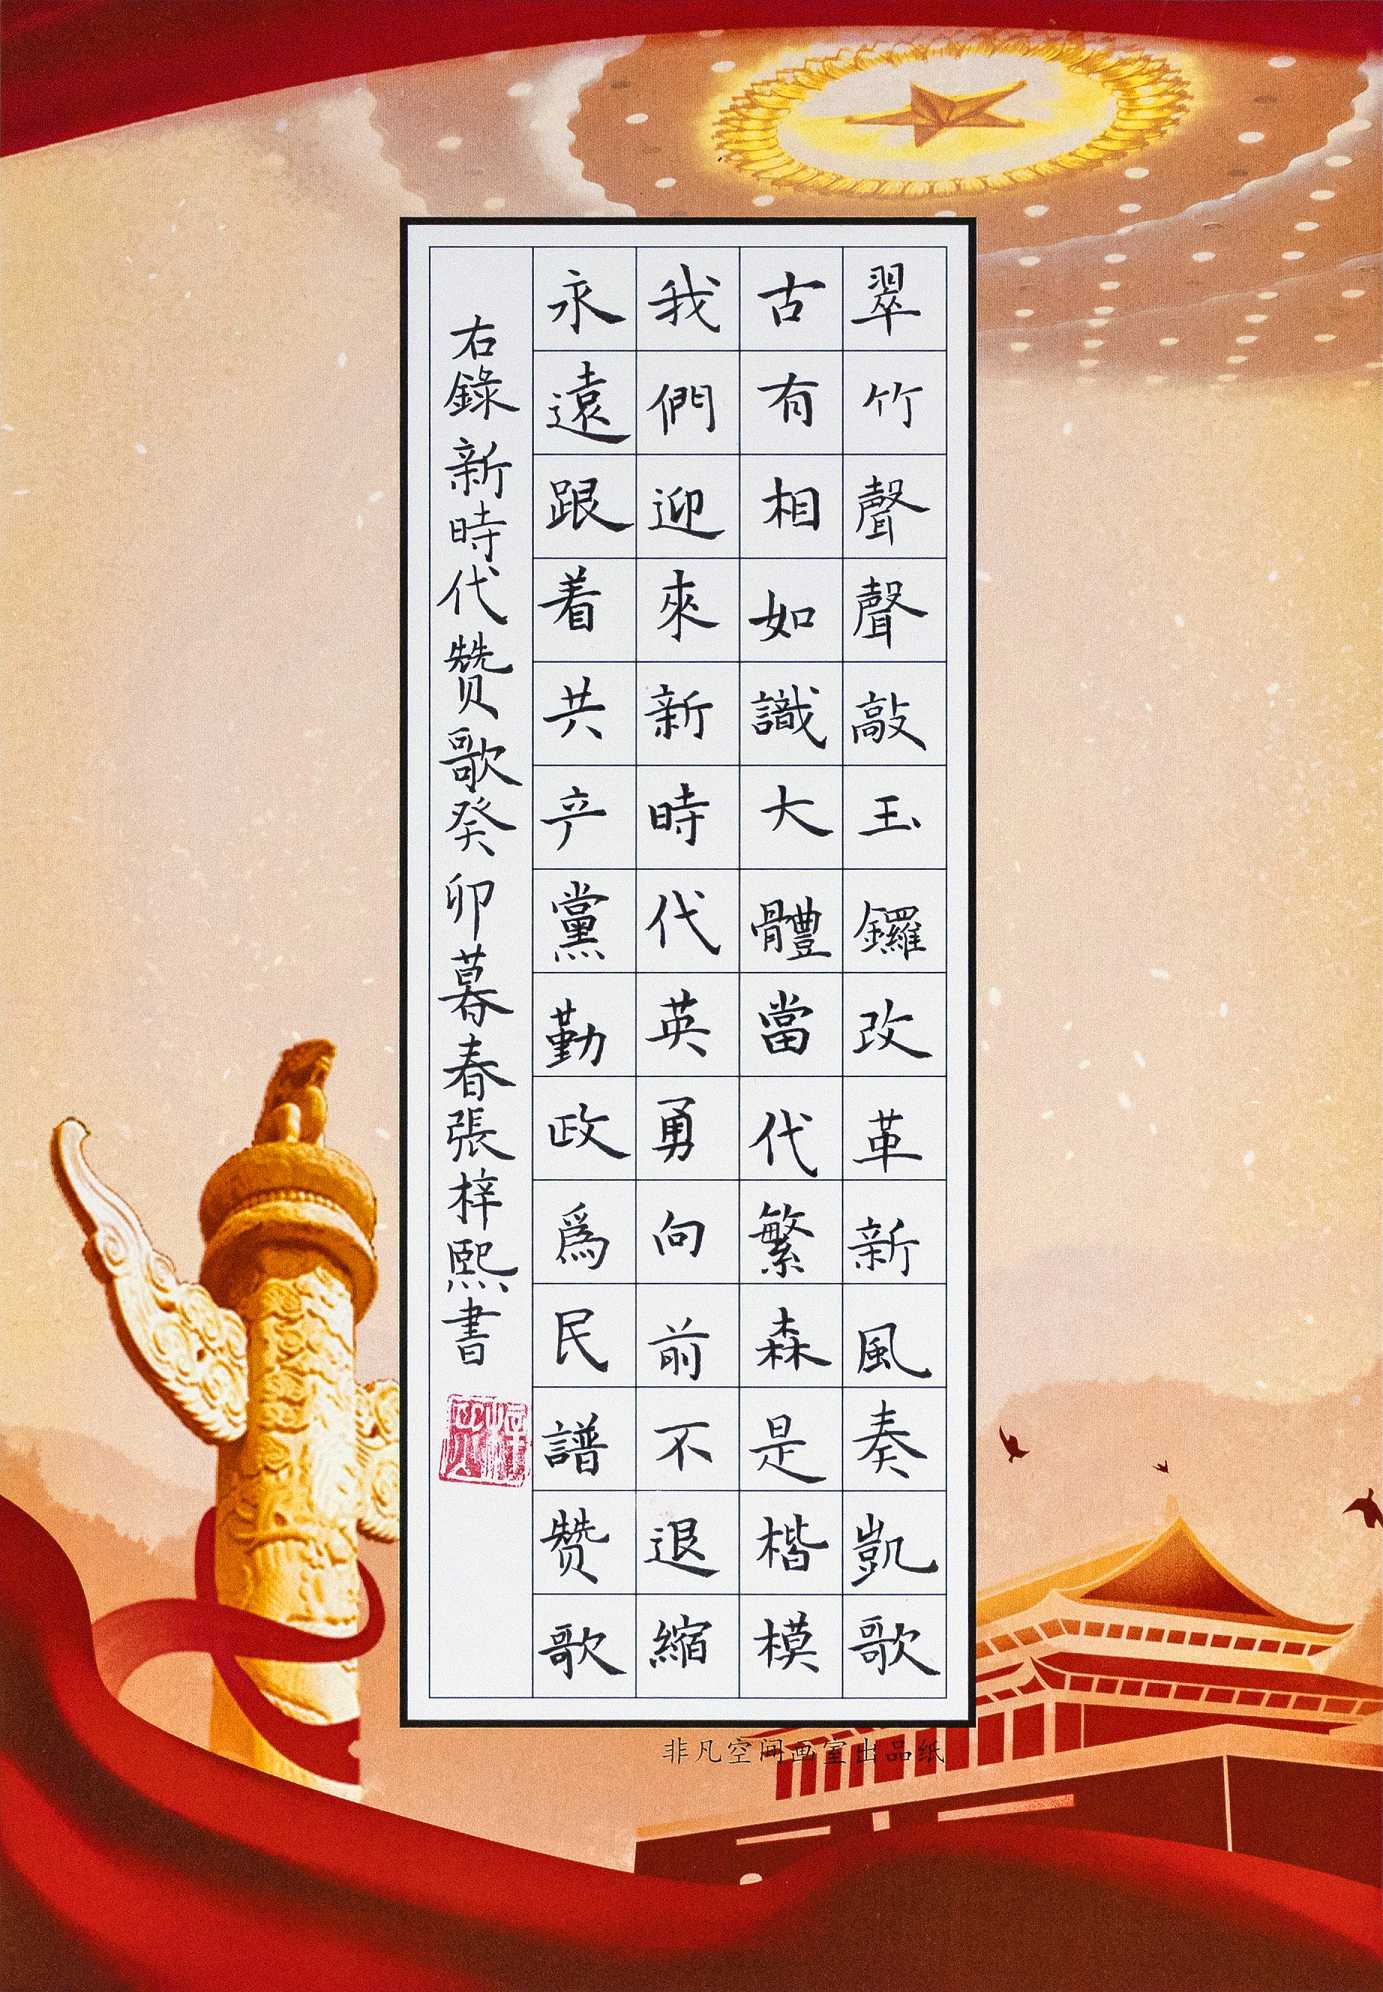 翠竹聲聲敲玉鑼改革新風奏凱歌
古有相如識大體當代繁森是楷模
我們迎來新時代英勇向前不退縮
永遠跟着共产黨勤政爲民譜赞歌
右錄新時代赞歌癸卯暮春張梓熙書
非凡空间画室出品纸